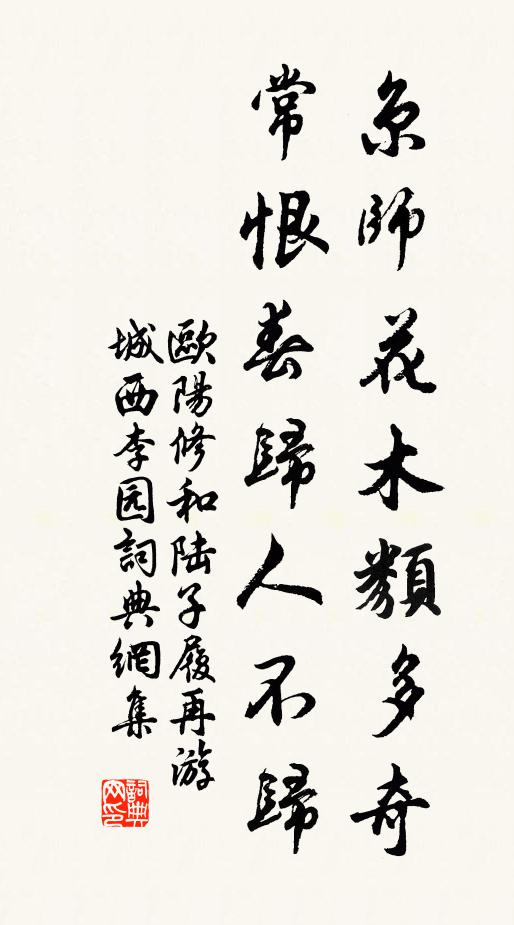 京師花木類多奇
常恨春歸人不歸
歐陽修和陆子履再游
城西李园詞典網集
詞典
网印